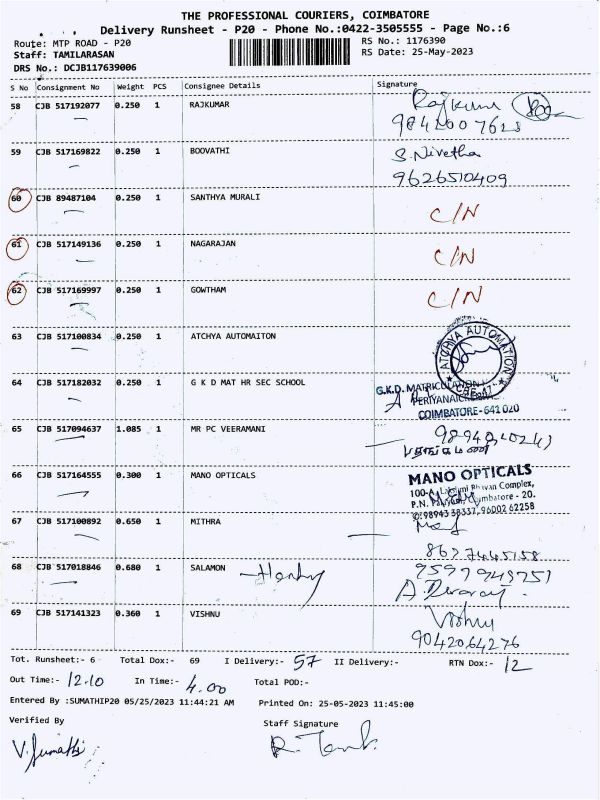 THE PROFESSIONAL COURIERS, COIMBATORE
Delivery Runsheet - P20 - Phone No.:0422-3505555 - Page No.:6
Route: MTP ROAD - P20
RS No.: 1176390
Staff: TAMILARASAN
RS Date: 25-May-2023
DRS No.: DCJB117639006
S No Consignment No Weight PCS Consignee Details Signature
58 CJB 517192077 0.250 1 RAJKUMAR Rajkumar
59 CJB 517169822 0.250 1 BOOVATHI S.Nivetha
9626510409
60 CJB 89487104 0.250 1 SANTHYA MURALI C/N
61 CJB 517149136 0.250 1 NAGARAJAN C/N
62 CJB 517169997 0.250 1 GOWTHAM C/N
63 CJB 517100834 0.250 1 ATCHYA AUTOMAITON ATCHYA AUTOMATION
64 CJB 517182032 0.250 1 G K D MAT HR SEC SCHOOL G.K.D. MATRICULATION
COIMBATORE-641 020
65 CJB 517094637 1.085 1 MR PC VEERAMANI
66 CJB 517164555 0.300 1 MANO OPTICALS MANO OPTICALS
100-A, Lakshmi Bhavan Complex,
Coimbatore - 20.
67 CJB 517100892 0.650 1 MITHRA
68 CJB 517018846 0.680 1 SALAMON
69 CJB 517141323 0.360 1 VISHNU Vishnu
9042064276
Tot. Runsheet:- 6 Total Dox:- 69 I Delivery:- 57 II Delivery:- RTN Dox:- 12
Out Time:- 12.10 In Time:- 4.00 Total POD:-
Entered By :SUMATHIP20 05/25/2023 11:44:21 AM Printed On: 25-05-2023 11:45:00
Verified By Staff Signature
V.Sumathi